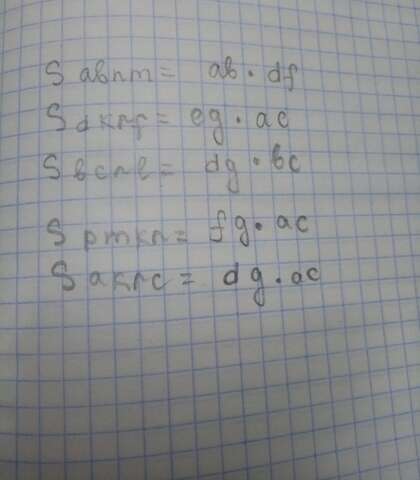 S abnm = ab · df
S dknf = eg · ac
S bcne = dg · bc
S pmkn = fg · ac
S aknc = dg · ac